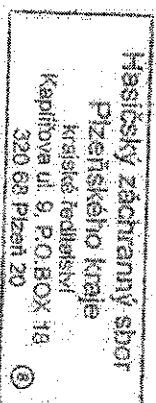 Hasičský záchranný sbor
Plzeňského kraje
krajské ředitelství
Kaplířova ul. 9, P.O.BOX 18
320 68 Plzeň 20
8